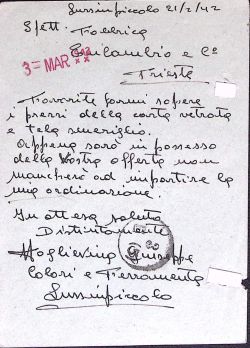 Lussinpiccolo 21/2/42
Spett. Fabbrica
3 = MAR. XX
e Cº
Trieste
Favorite farmi sapere
i prezzi della carta vetrata
e tela smeriglio.
Appena sarò in possesso
della Vostra offerta non
mancherò ad impartire la
mia ordinazione.
In attesa saluto
Distintamente
Giuseppe
Colori e Ferramenta
Lussinpiccolo